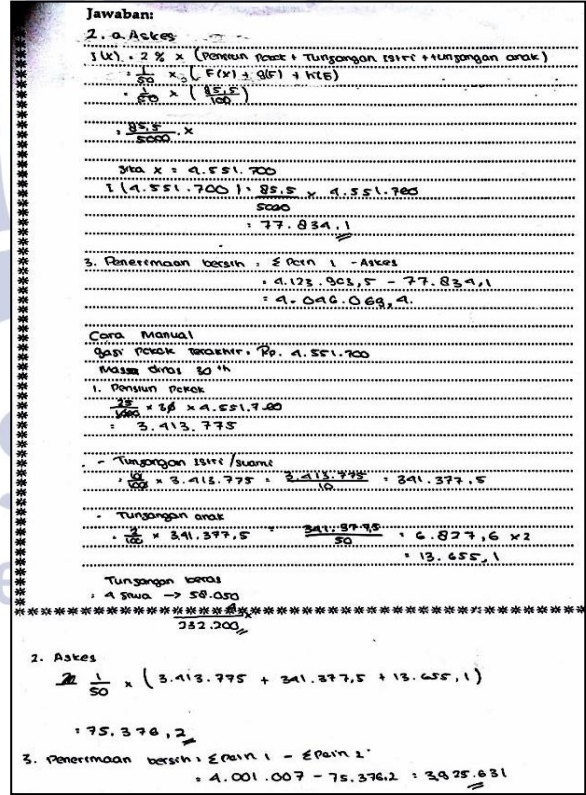 Jawaban:
2. a. Askes
I(x) = 2 % x (Pensiun Pokok + Tunjangan istri + tunjangan anak)
= 1/50 x (F(x) + g(F) + h(F)
= 1/50 x (85,5/100)
= 85,5/5000 . x
Jika x = 4.551.700
I (4.551.700) = 85,5/5000 x 4.551.700
= 77.834,1
3. Penerimaan bersih = Σ Poin 1 - Askes
= 4.123.903,5 - 77.834,1
= 4.046.069,4.
Cara Manual
gaji Pokok terakhir = Rp. 4.551.700
Massa dinas 30 th
1. Pensiun Pokok
25/1000 x 30 x 4.551.700
= 3.413.775
- Tunjangan istri/suami
= 10/100 x 3.413.775 = 3.413.775/10 = 341.377,5
- Tunjangan anak
= 2/100 x 341.377,5 = 341.377,5/50 = 6.827,6 x2
= 13.655,1
Tunjangan beras
= 4 jiwa -> 58.050
4 x
232.200
2. Askes
1/50 x (3.413.775 + 341.377,5 + 13.655,1)
= 75.376,2
3. Penerimaan bersih = Σ Poin 1 - Σ Poin 2
= 4.001.007 - 75.376,2 = 3.925.631